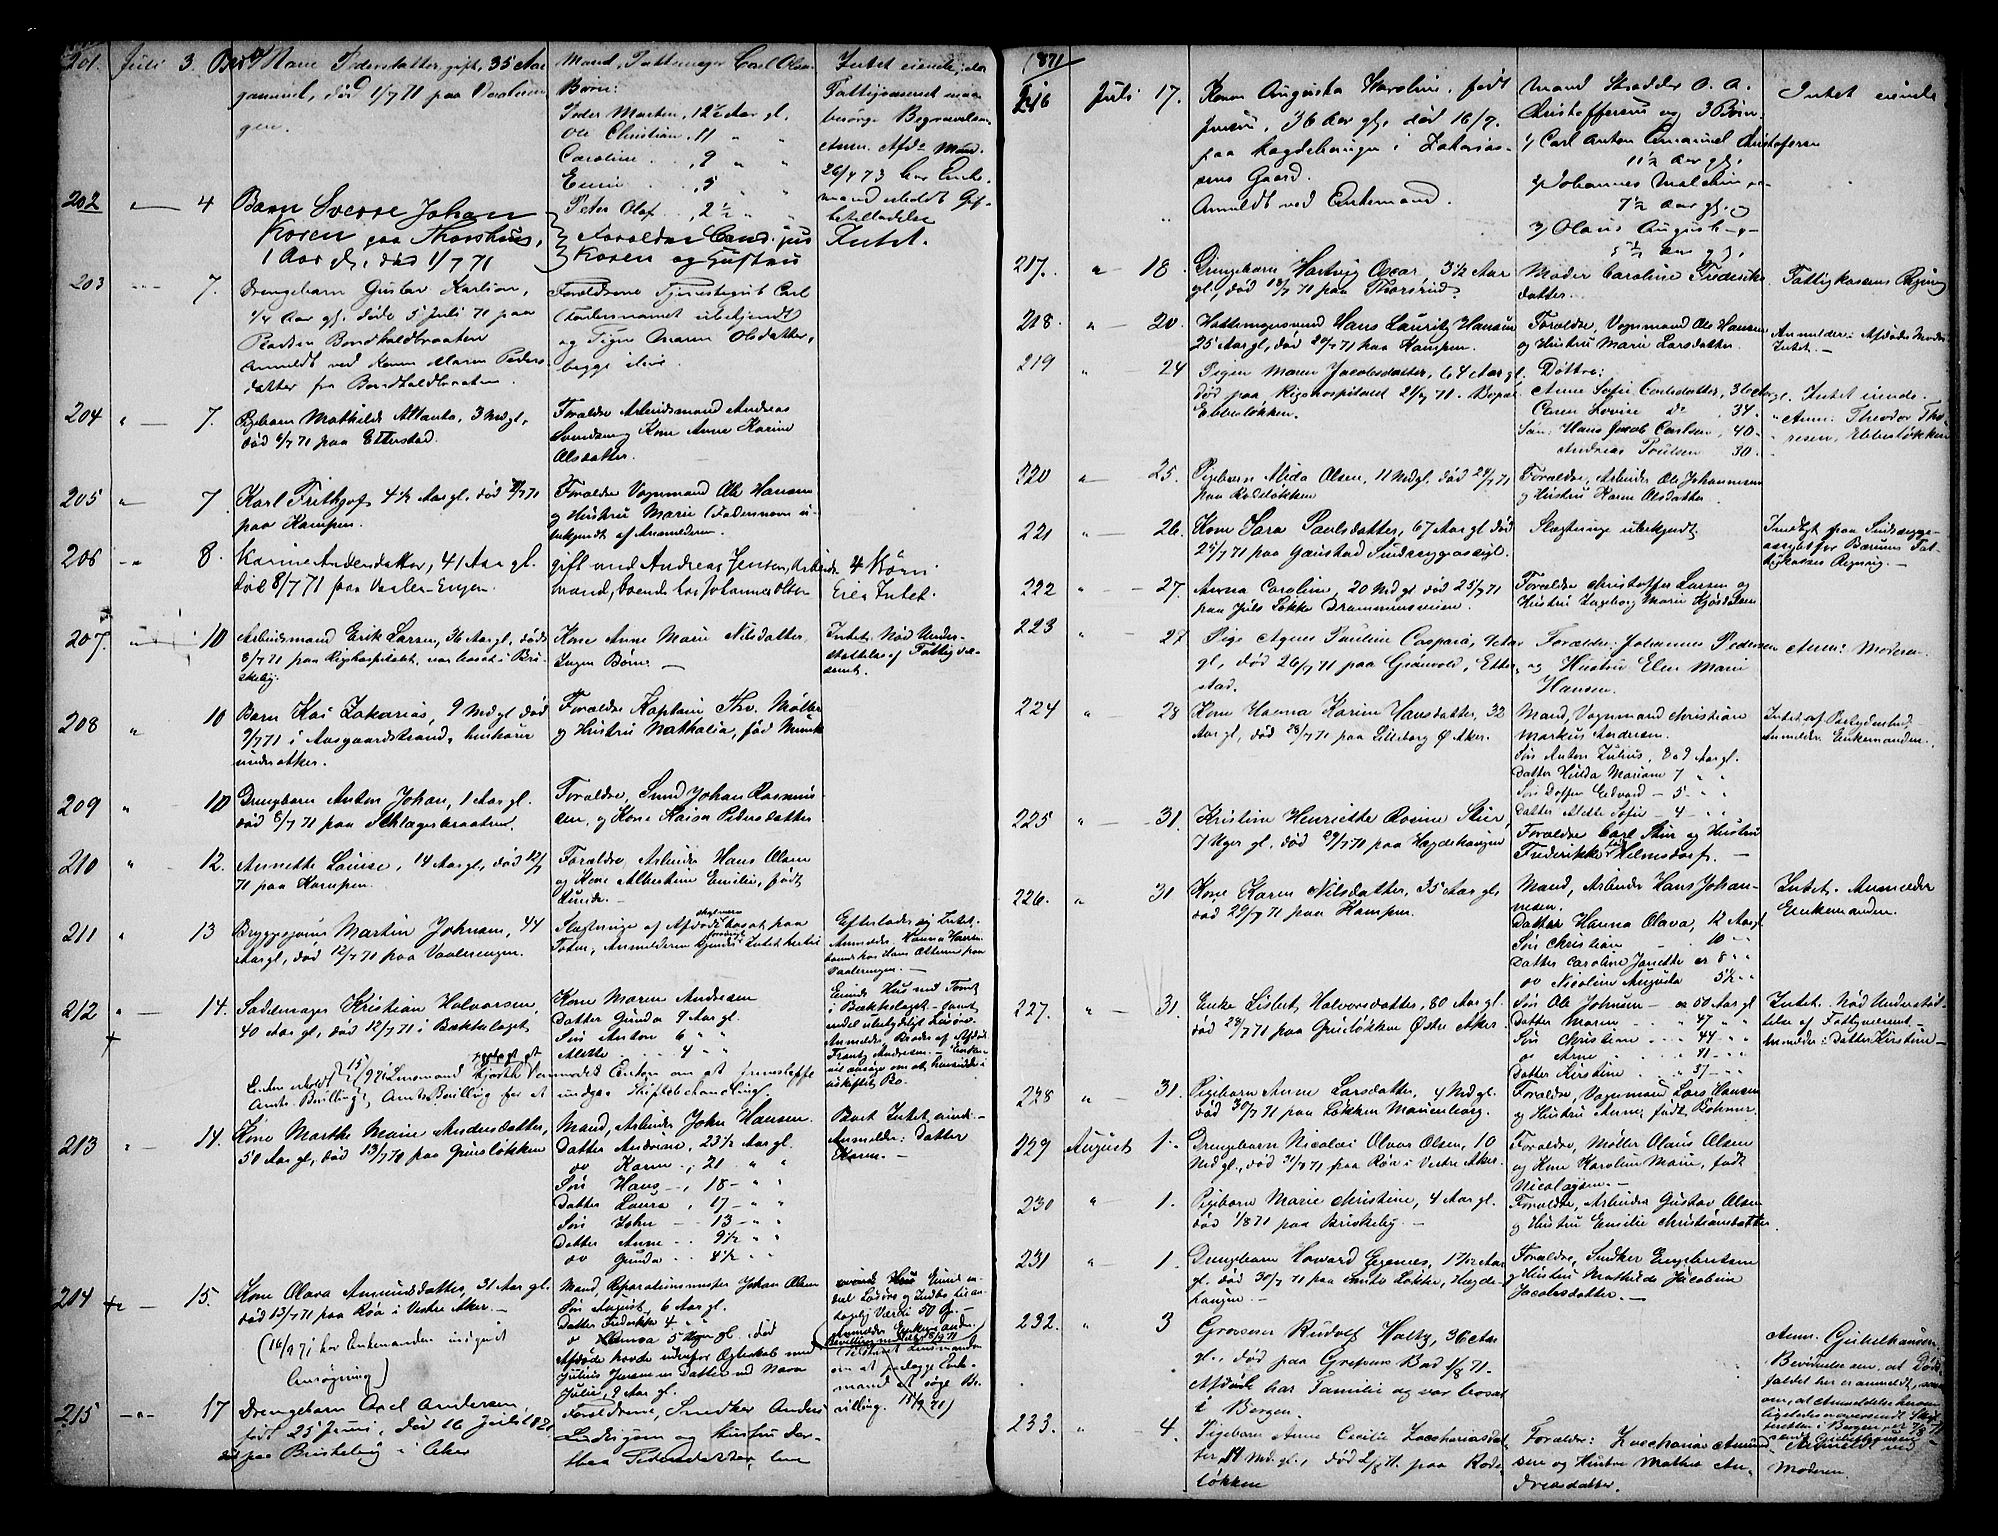 201. Juli 3. Marie Pedersdatter, gift, 35 Aar
gammel, død 1/7 71 paa Vaalerengen.
Mand, Pottemager Carl Olsen
Børn:
Peder Morten, 12½ Aar gl.
Ole Christian, 11 " "
Caroline . , 9 " "
Emin . . , 5 " "
Peter Olaf . , 2½ " "
Intet eiende, der
Fattigvæsenet maa
besørge Begravelsen
Anm. Afdø Mand.
26/4 73 har Enke-
mand erholdt
202 " 4 Barn Sverre Johan
Koren paa Thorshaug,
1 Aar gl., død 1/7 71
Forældre Cand. jur.
Koren og Gustava
Intet.
203 " 7. Drengebarn Gustav Karlsen,
1/4 Aar gl. døde 5 Juli 71 paa
Pladsen Bondholdbraaten
Anmeldt ved Konen Maren Peders-
datter fra Bondholdbraaten.
Forældrene Tjenestegut Carl
(Fadernavnet ubekjendt
og Pigen Maren Olsdatter,
begge ilive.
204 " 7. Pigebarn Mathilde Atlanta, 3 Md gl,
død 6/7 71 paa Etterstad.
Forældre Arbeidsmand Andreas
Svendsen og Kone Anne Karine
Olsdatter.
205 " 7 Karl Frithjof 4½ Aar gl, død 7/7 71
paa Kampen.
Forældre Vognmand Ole Hansen
og Hustru Marie (Fadernavn u-
bekjendt af Anmelderen.
206 " 8. Karine Andersdatter, 41 Aar gl.
død 8/7 71 paa Vaaler-Engen.
gift med Andreas Jensen, Arbeids-
mand, boende hos Johannes Olsen
4 Børn
Eier Intet.
207. " 10 Arbeidsmand Erik Larsen, 36 Aar gl, døde
8/7 71 paa Rigshospitalet, var bosat i Bri-
skeby.
Kone Anne Marie Nilsdatter
Ingen Børn. —
Intet. Nød Under-
støttelse af Fattigvæ-
senet.
208 " 10 Barn Kai Zakarias, 9 Md gl død
9/7 71 i Aasgaardstrand, henhører
under Aker.
Forældre Kaptein Thv. Møller
og Hustru Nathalia, født Munk
209 " 10 Drengebarn Anton Johan, 1 Aar gl.
død 8/7 71 paa Schlagerbraaten.
Forældre, Smed Johan Rasmus-
sen, og Kone Kaisa Pedersdatter
210 " 12. Annette Louise, 14 Aar gl, død 12/7
71 paa Kampen.
Forældre, Arbeider Hans Olsen
og Kone Albertine Emilie, født
Lunde. —
211 " 13 Bryggesjouer Martin Johnsen, 44
Aar gl, død 12/7 71 paa Vaalerengen.
Slægtninge af Afdøde bosat paa
Toten, Anmelderen Intet hertil
Efterlader sig Intet.
Anmelder Hanna Hansen
boende hos Hans Ottesen paa
Vaalerengen. —
212 " 14. Sadelmager Kristian Halvorsen,
40 Aar gl, død 12/7 71 i Bækkelaget.
Kone Maren Andresen
Datter Gunda 9 Aar gl.
Søn Anton 6 " "
Alette . . 4 " "
Eiende Hus med Tomt
i Bækkelaget samt
endel ubetydeligt Løsøre
Anmelder, Broder af Afdøde
Frantz Andresen. — Enken
vil ansøge om at hensidde i
uskiftet Bo.
213 " 14. Kone Marthe Marie Andersdatter,
50 Aar gl, død 13/7 71 paa Grünsløkken
Mand, Arbeider John Hansen
Datter Andrine, 23½ Aar gl.
do Karen . , 21 " "
Søn Hans — , 18 — " "
Datter Laura , 17 — " "
Søn John — 13 — " "
Datter Anne . . 9½ " "
do Gunda . . 4½ " "
Boet Intet eiende. —
Anmelder: Datter
Karen. —
214 " 15. Kone Olava Amundsdatter, 31 Aar gl.
død 13/7 71 paa Røa i Vestre Aker. —
(16/9 71 har Enkemanden indgivet
Ansøgning)
Mand, Reparationsmester Johan Olsen
Søn August, 6 Aar gl.
Datter Fredrikke 4 " "
Afdøde havde udenfor Ægteskab med
Julius Jensen en Datter ved Navn
Julie, 9 Aar gl.
215 " 17 Drengebarn Axel Andersen,
født 25 Juni, død 16 Juli 1871
paa Briskeby i Aker
Forældrene, Snedker Anders
Ludvigsen og Hustru Dor-
thea Pedersdatter, lev
1871
216 Juli 17. Konen Augusta Karoline, født
Jensen, 36 Aar gl., død 16/7.
paa Hægdehaugen i Zakarias-
sens Gaard.
Anmeldt ved Enkemand.
Mand Skrædder O. A.
Christoffersen og 3 Børn
1/ Carl Anton Emanuel Christofersen
11½ Aar gl.
2/ Johannes Malchin
7½ Aar gl. og
3/ Olaus August
5½ Aar gl.
Intet eiende
217. " 18. Drengebarn Hartvig Oscar, 3½ Aar
gl., død 18/7 71 paa Thorsrud.
Moder Caroline Frederiks-
datter.
Fattigkassens Regning
218. " 20. Hattemagersvend Hans Lauritz Hansen
25 Aar gl, død 20/7 71 paa Kampen.
Forældre, Vognmand Ole Hansen
og Hustru Marie Larsdatter.
Anmelder: Afdødes Moder
Intet. —
219 " 24 Pigen Maren Jacobsdatter, 64 Aar gl.
død paa Rigshospitalet 21/7 71. Bopæl
Ebbesløkken.
Døttre:
Anne Sofie Carlsdatter, 36 Aar gl.
Caren Lovise do . 34. "
Søn: Hans Jacob Carlsen, 40 "
Andreas Poulsen 30 "
Intet eiende.
Anm: Theodor Tho-
resen, Ebbesløkken
220 " 25. Pigebarn Alida Olsen, 11 Md gl, død 24/7 71
paa Rodeløkken
Forældre, Arbeider Ole Johannesen
og Hustru Karen Olsdatter.
221 " 26. Kone Sara Paulsdatter, 67 Aar gl død
25/7 71 paa Gaustad Sindssygeasyl.
Slægtninge ubekjendt.
Indlagt paa Sindssyge-
asylet for Bærums Fat-
tigkasses Regning. —
222 " 27. Anna Caroline, 20 Md gl død 25/7 71
paa Juls Løkke Drammensveien.
Forældre Christoffer Larsen og
Hustru Ingeborg Marie Kjøsdalen
223 " 27 Pige Agnes Pauline Caspara, 4 Aar
gl, død 26/7 71 paa Grønvold, Etter-
stad.
Forældre: Johannes Pedersen
og Hustru Elen Marie
Hansen.
Anm: Moderen.
224 " 28 Kone Hanna Karine Hansdatter, 32
Aar gl, død 28/7 71 paa Lilleborg Ø Aker.
Mand, Vognmand Christian
Markus Andersen.
Søn Anton Julius, 8 Aar gl.
Datter Hilda Mariane 7 " "
Søn Edvard — 5 " "
Datter Alette Sofie — 4 — " "
Intet af Betydenhed.
Anmelder Enkemanden.
225 " 31. Kristine Henriette Rosine Skur,
7 Uger gl, død 29/7 71 paa Hægdehaugen
Forældre Carl Skur og Hustru
Frederikke født Helmsdorf. —
226. " 31 Kone Karen Nilsdatter, 35 Aar gl
død 29/7 71 paa Kampen.
Mand, Arbeider Hans Johan-
nesen.
Datter Hanna Olava, 12 Aar gl
Søn Christian — 10 " "
Datter Caroline Janette er 8 " "
do Nicoline Augusta 5½ " "
Intet. Anmelder
Enkemanden.
227. " 31. Enke Lisbet Halvorsdatter, 80 Aar gl.
død 29/7 71 paa Grüsløkken Østre Aker.
Søn Ole Johnsen — ca 50 Aar gl
Datter Maren — 47 " "
Søn Christian 44 " "
do Arne . . 41 — " "
Datter Kirstine . . 37 — " "
Intet. Nød Understøt-
telse af Fattigvæsenet —
Anmelder: Datter Kirstine —
228 " 31. Pigebarn Anne Larsdatter, 4 Md gl.
død 30/7 71 paa Løkken Marienborg.
Forældre, Vognmand Lars Hansen
og Hustru Anne, født Bohmer.
229 August 1. Drengebarn Nicolai Olaus Olsen, 10
Md gl., død 31/7 71 paa Røa i Vestre Aker.
Forældre, Møller Olaus Olsen
og Kone Karoline Marie, født
Nicolaysen. —
230 " 1. Pigebarn Marie Christine, 4 Aar gl.
død 1/8 71 paa Briskeby. —
Forældre, Arbeider Gustav Olsen
og Hustru Emilie Christiansdatter.
231 " 1. Drengebarn Howard Egenes, 1½ Aar
gl. død 30/7 71 paa Løkke, Hægde-
haugen. —
Forældre, Snedker Engebretsen
og Hustru Mathilde Jacobine
Jacobsdatter. —
232. " 3 Grosserer Rudolf Holtz, 36 Aar
gl., død paa Grefsens Bad 1/8 71.
Afdøde har Familie og var bosat
i Bergen.
233. " 4. Pigebarn Anne Cecilie Zacchariasdat-
ter, 11 Md. gl., død 2/8 71. paa Rode-
løkken
Forældre: Zaccharias Amund-
sen og Hustru Mathea An-
dreasdatter.
Anmeldt ved
Moderen.